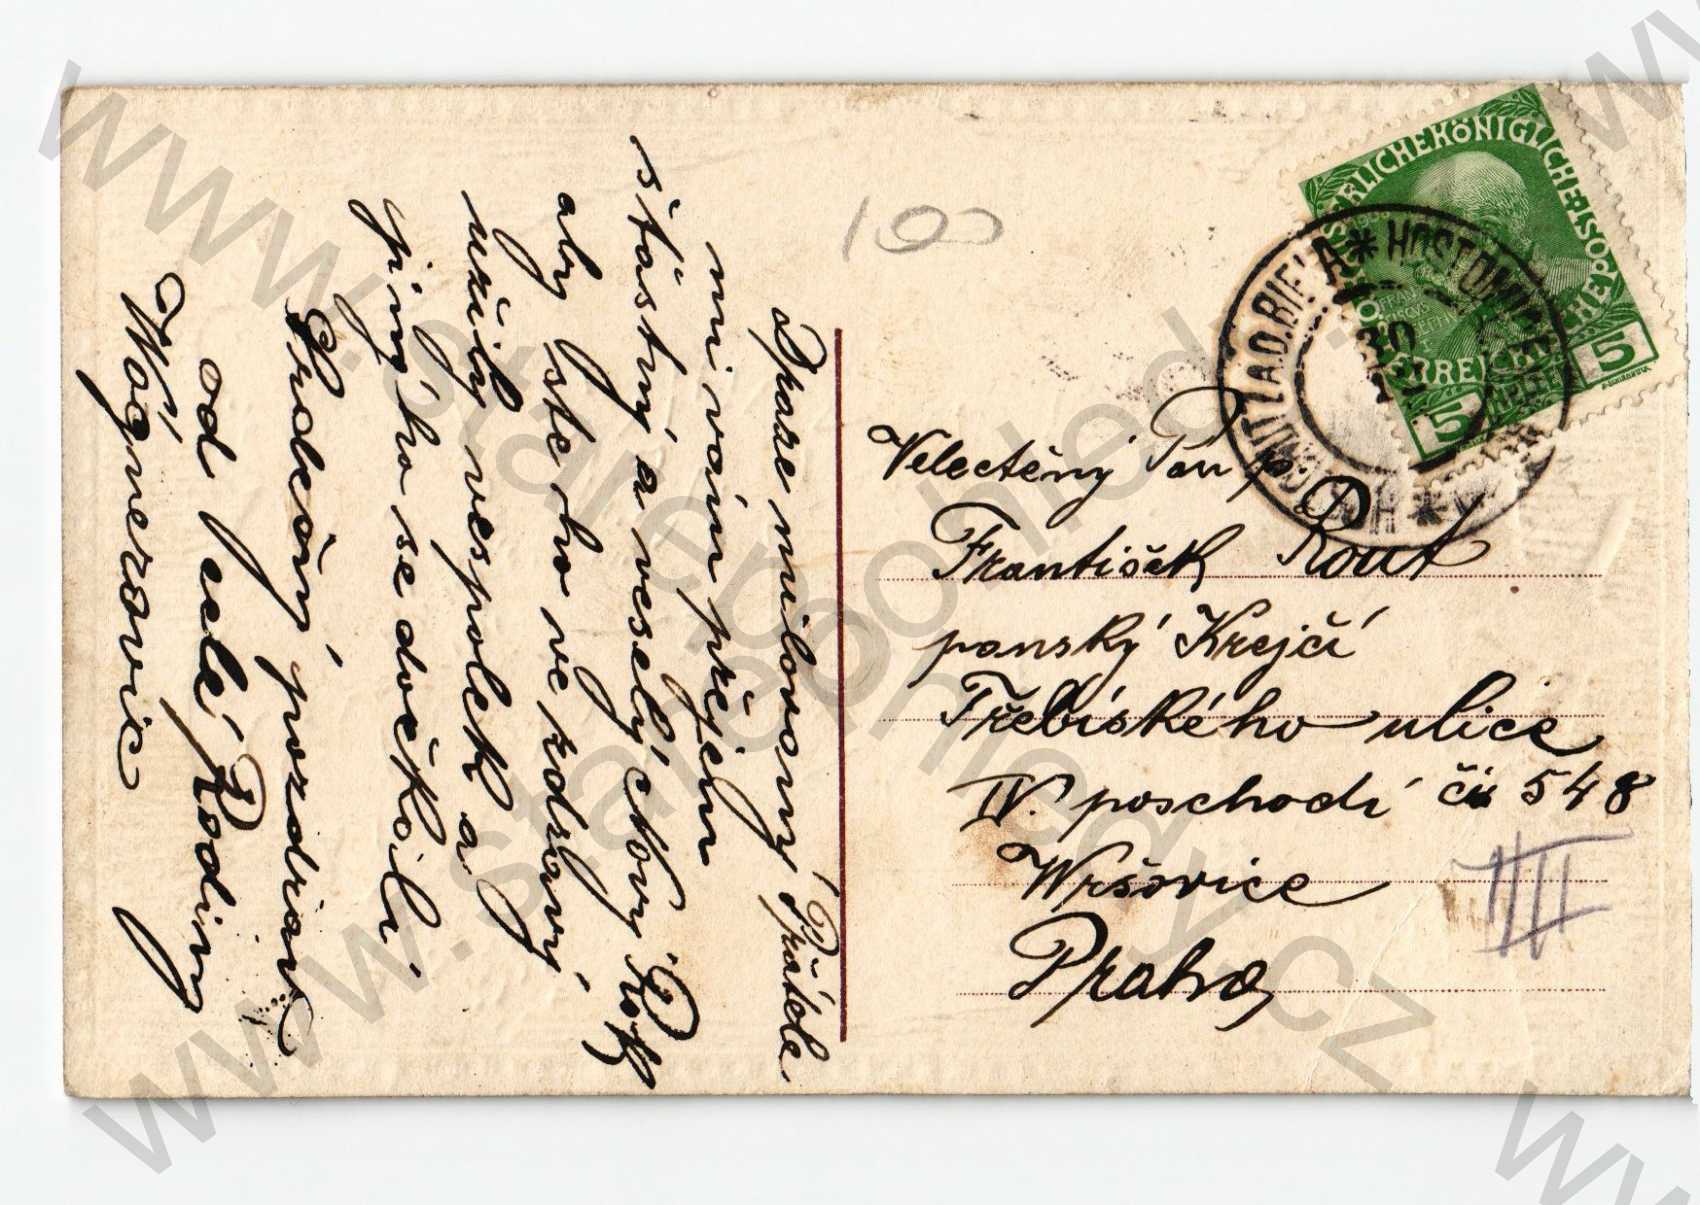 Draze milovaný Přátele
mi vám přejem
šťastný a veselý Nový Rok
aby ste ho ve zdraví
užily vespolek a
jiných se dočkali
Srdečný pozdrav
od celé Rodiny
Wágnerovic
100
KAISERLICHE KÖNIGLICHE ÖSTERREICHISCHE
5 5
HOSTOMICE
HOSTOMITZ A.D. BIELA
Velectěný Pan p.
František Rout
panský Krejčí
Třebíského ulice
IV. poschodí či 548
Wršovice
Praha
VIII
www.starepohledy.cz
www.starepohledy.cz